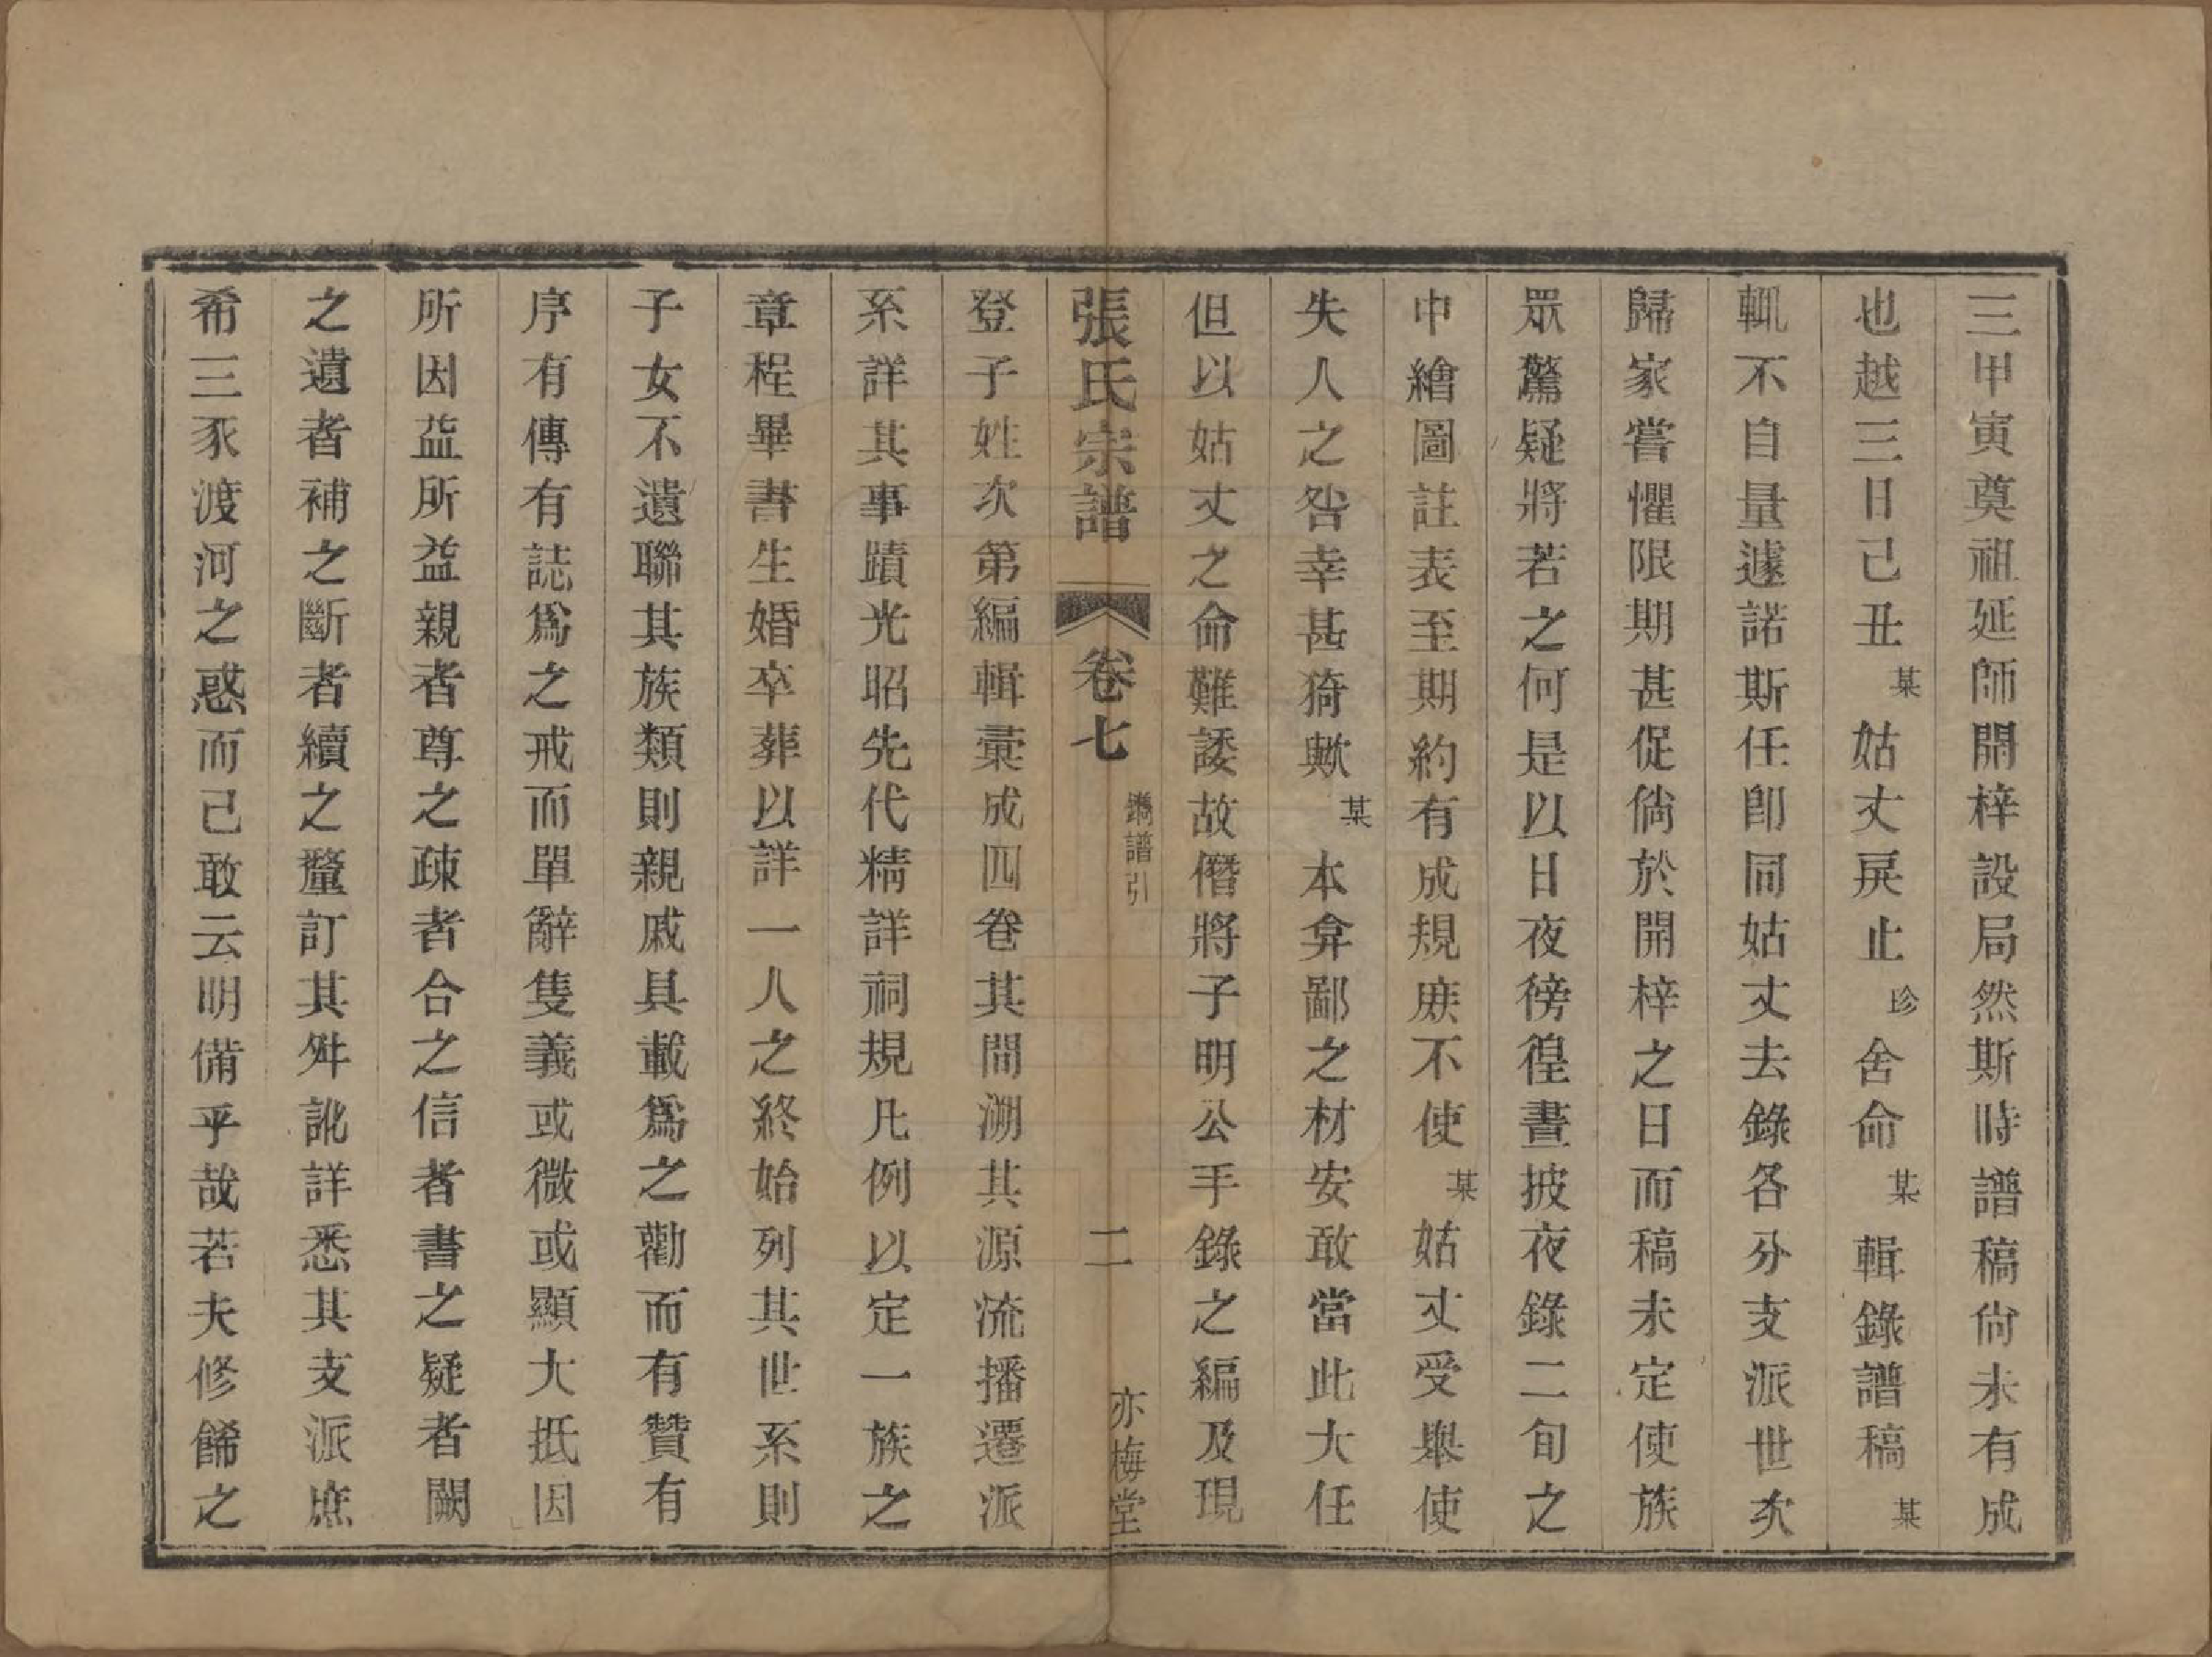 三甲寅奠祖延師開梓設局然斯時譜稿尙未有成
也越三日己丑某姑丈戾止珍舍命某輯錄譜稿某
輒不自量遽諾斯任卽同姑丈去錄各分支派世次
歸家嘗懼限期甚促倘於開梓之日而稿未定使族
眾驚疑將若之何是以日夜徬徨晝披夜錄二旬之
中繪圖註表至期約有成規庶不使某姑丈受舉使
失人之咎幸甚猗歟某本弇鄙之材安敢當此大任
但以姑丈之命難諉故僭將子明公手錄之編及現
張氏宗譜 卷七 鐫譜引 二 亦梅堂
登子姓次第編輯彙成四卷其間溯其源流播遷派
系詳其事蹟光昭先代精詳祠規凡例以定一族之
章程畢書生婚卒葬以詳一人之終始列其世系則
子女不遺聯其族類則親戚具載爲之勸而有贊有
序有傳有誌爲之戒而單辭隻義或微或顯大抵因
所因益所益親者尊之疎者合之信者書之疑者闕
之遺者補之斷者續之釐訂其舛訛詳悉其支派庶
希三豕渡河之惑而已敢云明備乎哉若夫修餙之